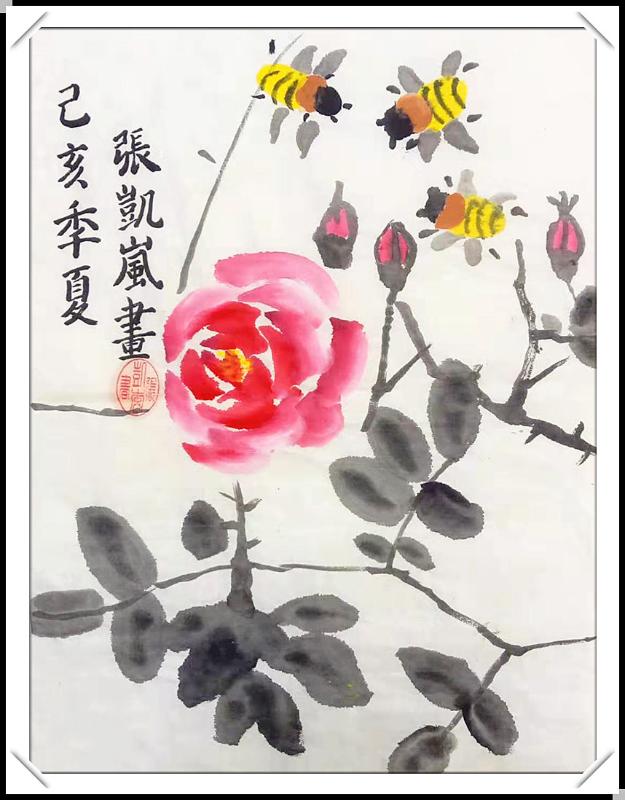 己亥季夏
張凱嵐畫